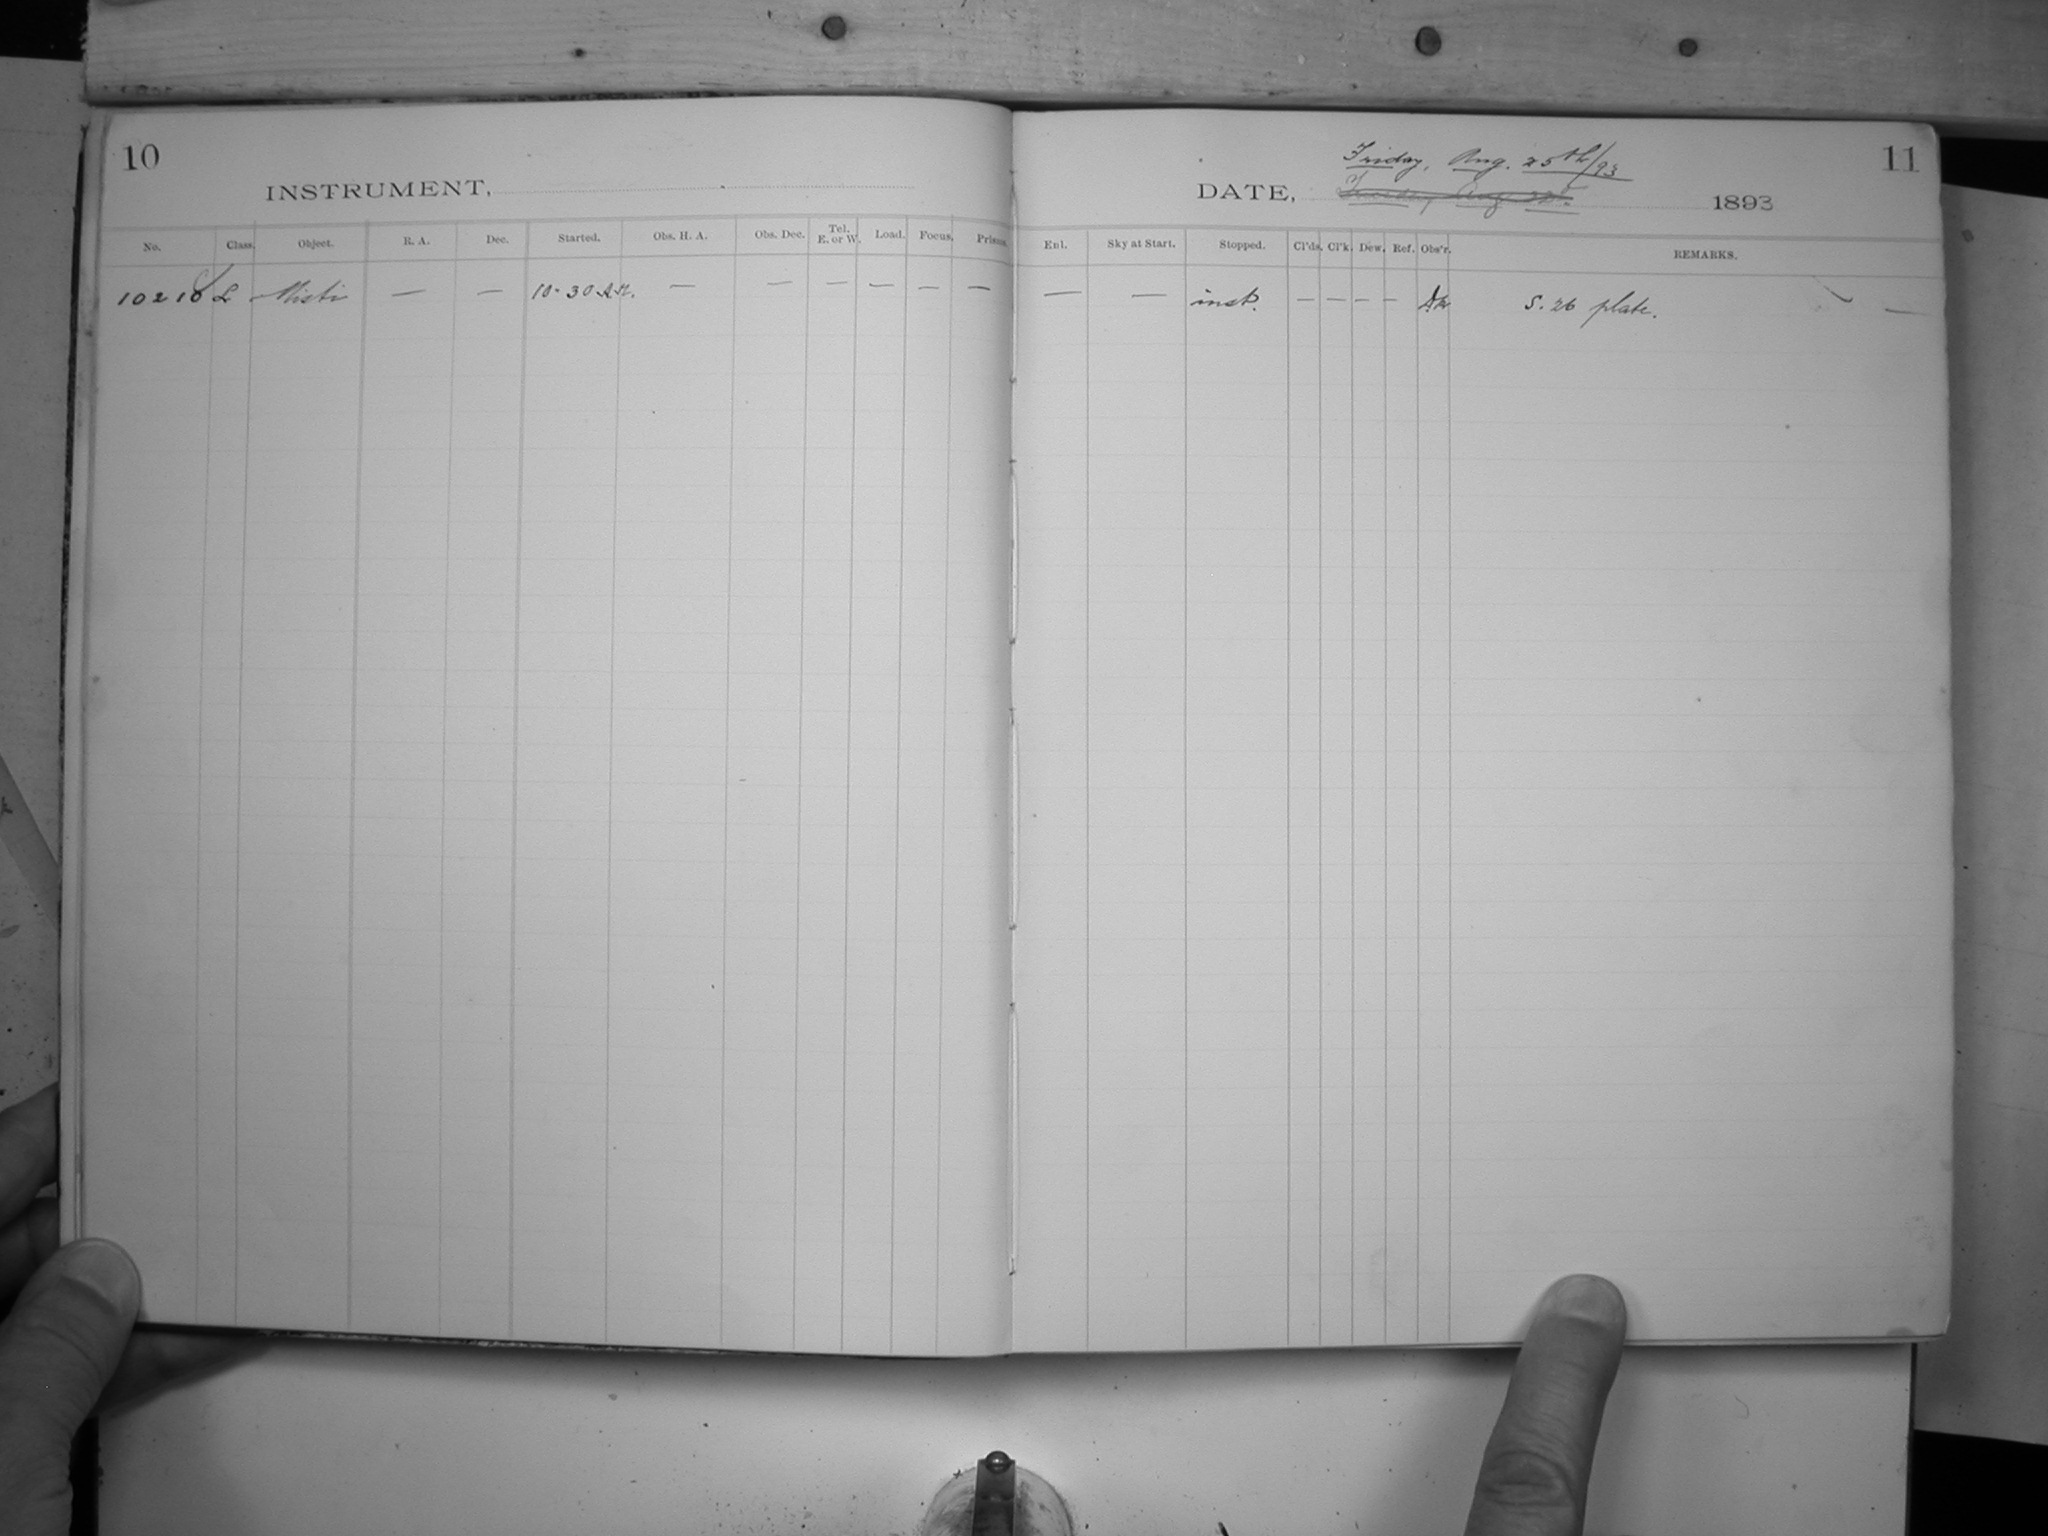 10
INSTRUMENT,
No. Class. Object. R. A. Dec. Started. Obs. H. A. Obs. Dec. Tel. E. or W. Load. Focus. Prisms.
10210 L Misti — — 10-30 A.M. — — — — — —
11
Friday, Aug. 25th/93
DATE, Tuesday Aug 22 1893
Enl. Sky at Start. Stopped. Cl'ds. Cl'k. Dew. Ref. Obs'r. REMARKS.
— — inst. — — — — S. 26 plate. —